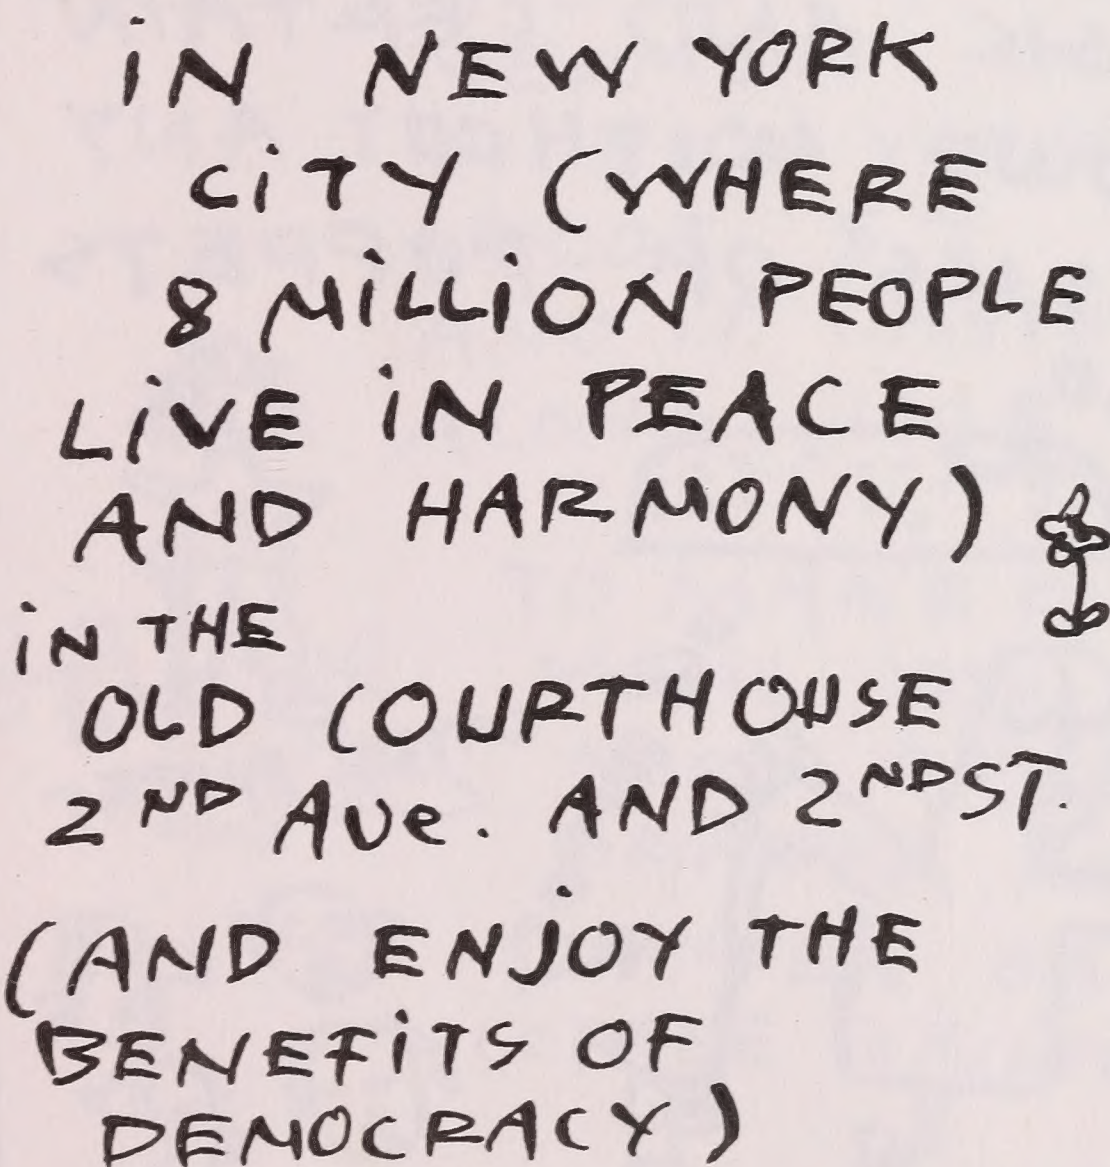 iN NEW YORK
CiTY (WHERE
8 MiLLiON PEOPLE
LiVE iN PEACE
AND HARMONY)
iN THE
OLD COURTHOUSE
2ND AVe. AND 2ND ST.
(AND ENJOY THE
BENEFiTS OF
DEMOCRACY)